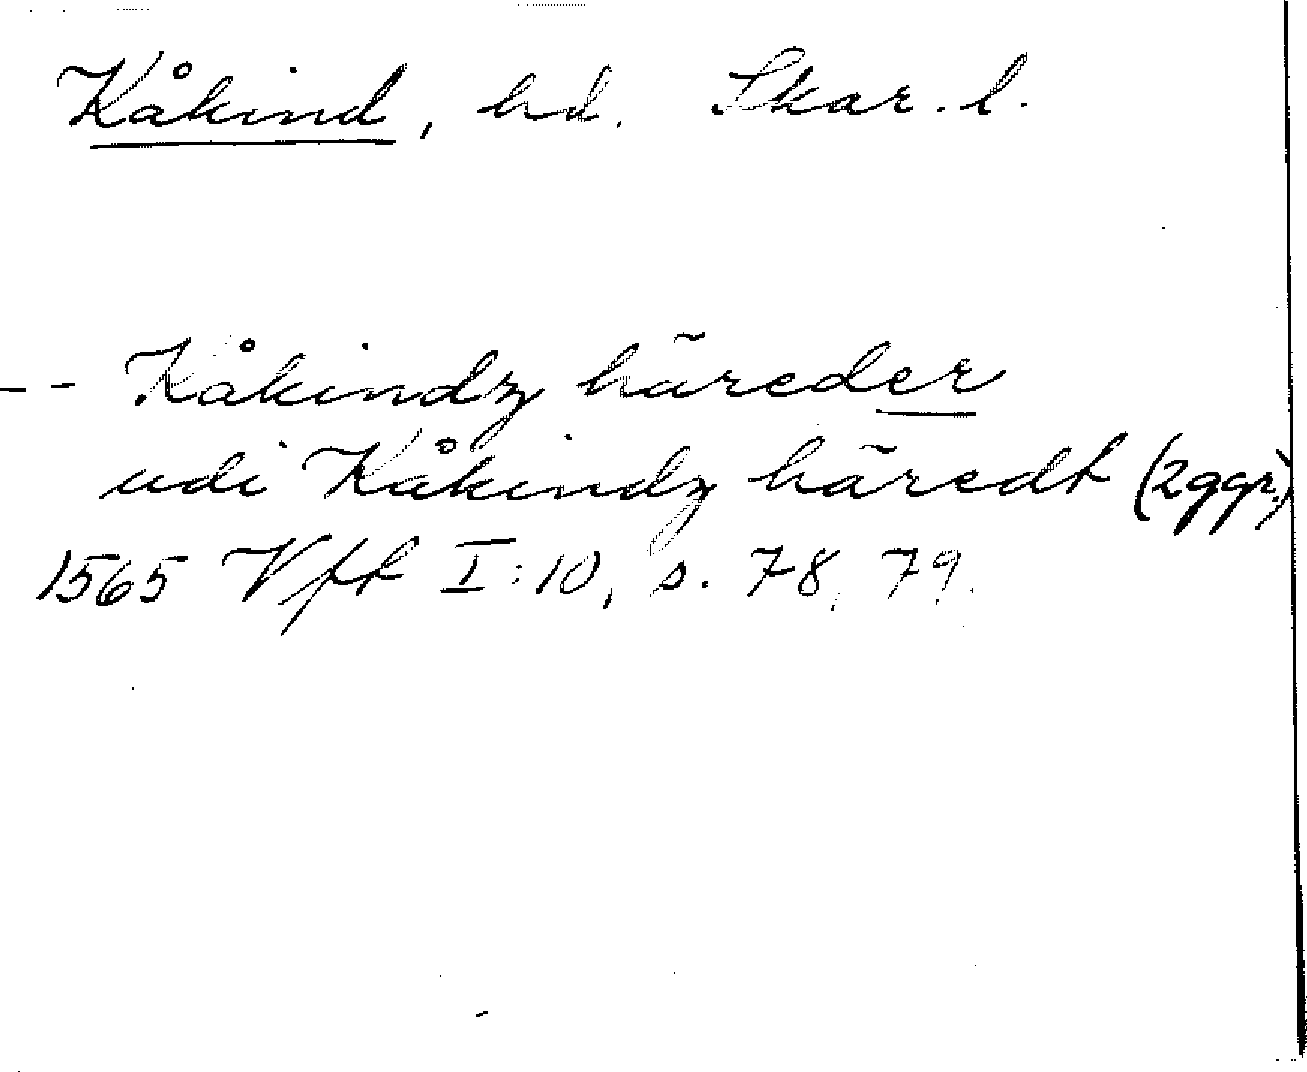 Kåkind, hd. Skar. l.
-- Kåkindz häreder
udi Kåkindz häredt (2ggr.)
1565 Vft I:10, s. 78, 79.